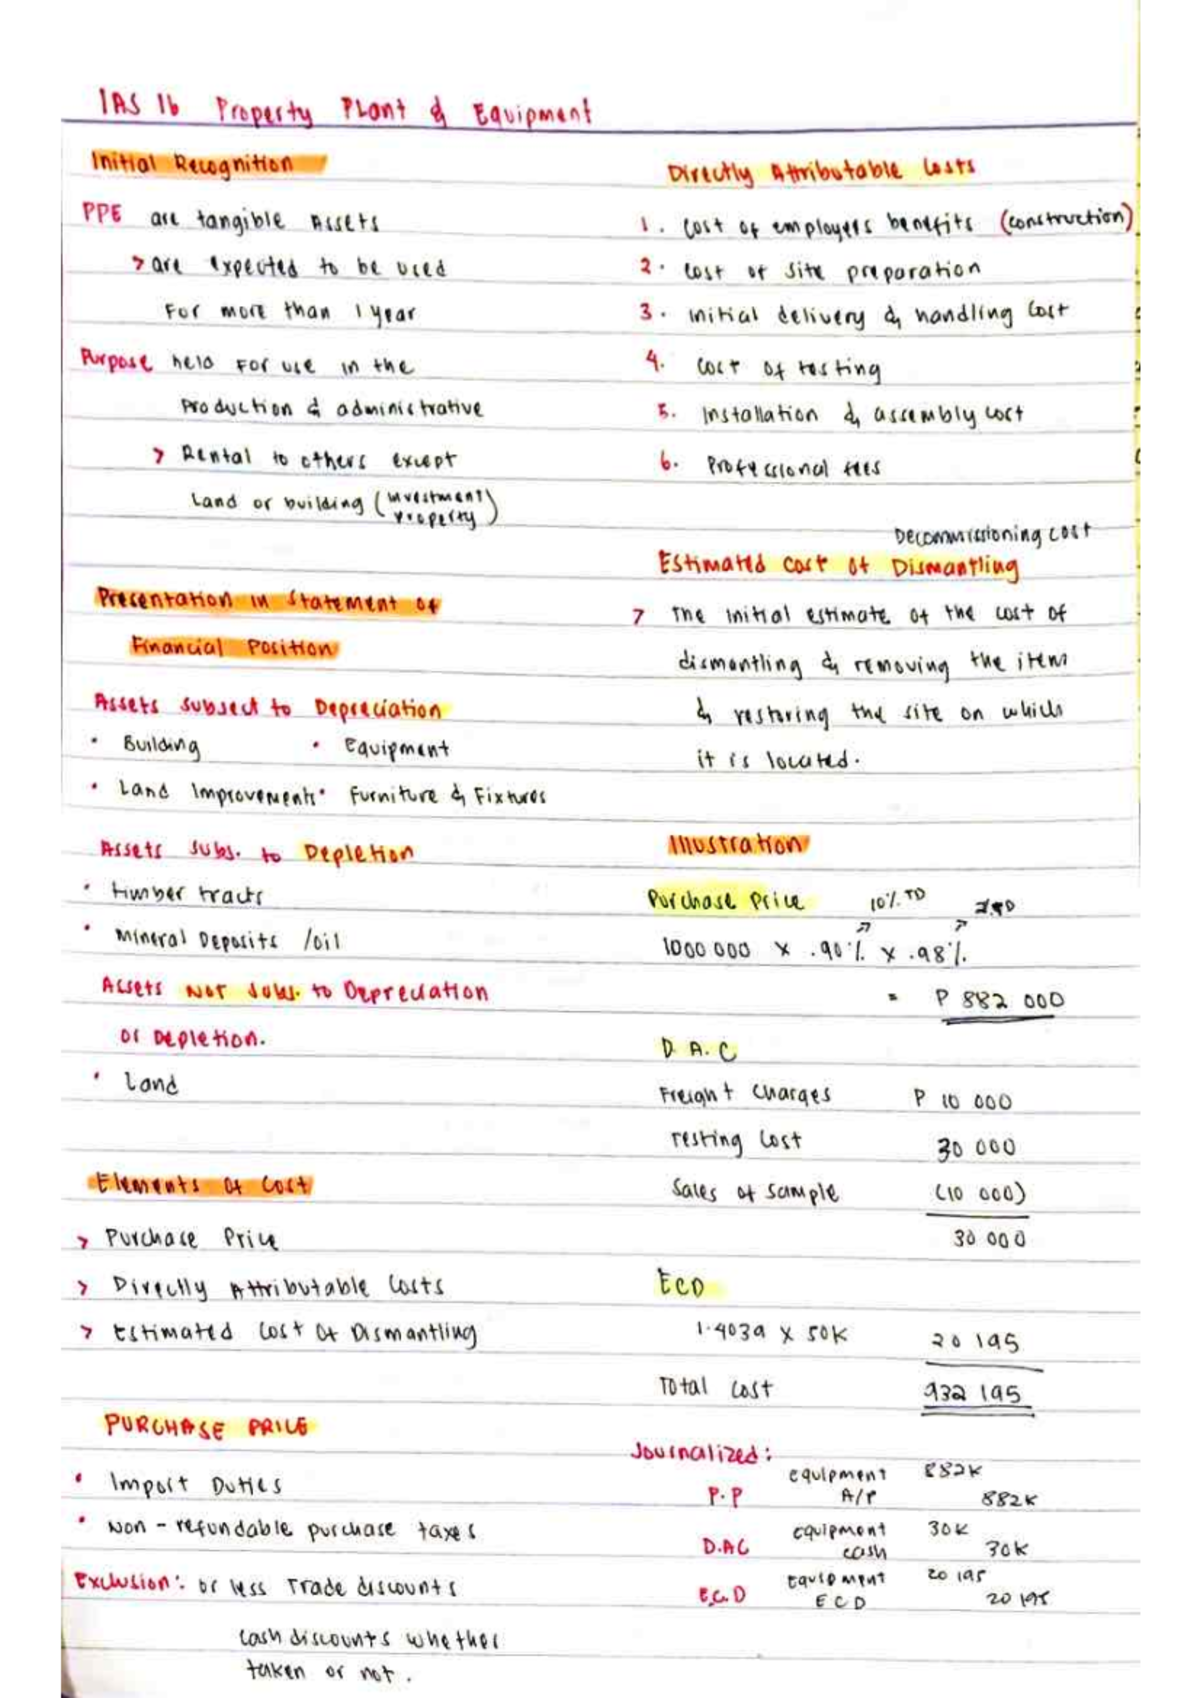 IAS 16 Property Plant & Equipment
Initial Recognition
PPE are tangible Assets
> are expected to be used
For more than 1 year
Purpose held for use in the
Production & administrative
> Rental to others except
Land or building (Investment Property)
Presentation in Statement of
Financial Position
Assets subject to Depreciation
• Building • Equipment
• Land Improvements • Furniture & Fixtures
Assets subs. to Depletion
• timber tracts
• Mineral Deposits /oil
Assets NOT subs. to Depreciation
or Depletion.
• Land
Elements of Cost
> Purchase Price
> Directly Attributable Costs
> Estimated Cost of Dismantling
PURCHASE PRICE
• Import Duties
• Non-refundable purchase taxes
Exclusion: or less Trade discounts
cash discounts whether
taken or not.
Directly Attributable Costs
1. Cost of employees benefits (construction)
2. Cost of site preparation
3. initial delivery & handling cost
4. Cost of testing
5. Installation & assembly cost
6. Professional fees
Decommissioning cost
Estimated Cost of Dismantling
> The initial estimate of the cost of
dismantling & removing the item
& restoring the site on which
it is located.
Illustration
Purchase Price 10% TD
1000 000 x .90% x .98%
= P 882 000
D.A.C
Freight Charges P 10 000
Testing Cost 30 000
Sales of Sample (10 000)
30 000
ECD
1.4039 x 50K 20 195
Total Cost 932 195
Journalized:
P.P equipment 882K
A/P 882K
D.AC equipment 30K
cash 30K
E.C.D Equipment 20 195
ECD 20 195